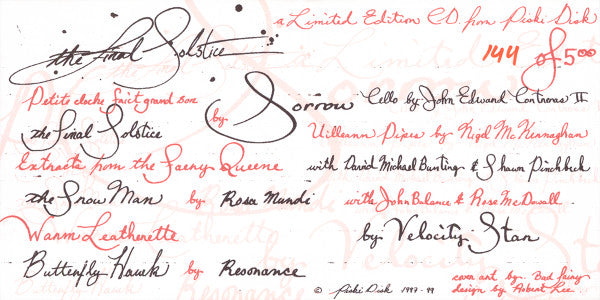 a Limited Edition CD from Piski Disk
the Final Solstice
144 of 500
Petite cloche fait grand son
by Sorrow
Cello by John Edward Contreras II
the Final Solstice
Uilleann Pipes by Nigel McKernaghan
Extracts from the Faery Queene
with David Michael Bunting & Shawn Pinchbeck
the Snow Man by Rosa Mundi
with John Balance & Rose McDowall
Warm Leatherette
by Velocity Stan
Butterfly Hawk by Resonance
cover art by Bad Fairy
© Piski Disk 1997-99
design by Robert Lee